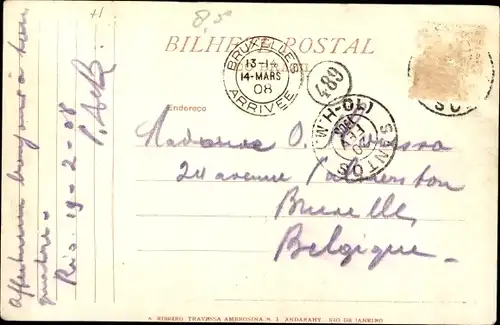 +1
8,5
BILHETE POSTAL
BRUXELLES
13-14
14-MARS
08
ARRIVÉE
489
SANTOS
20 FEV 1908
(10-H.M.)
SUL
Endereço
Madame O.
24 avenue Palmerston
Bruxelles
Belgique.
Affectueux bonjours à tous
quatre.
Rio 19-2-08
A. RIBEIRO TRAVESSA AMBROSINA N. 1 ANDARAHY - RIO DE JANEIRO